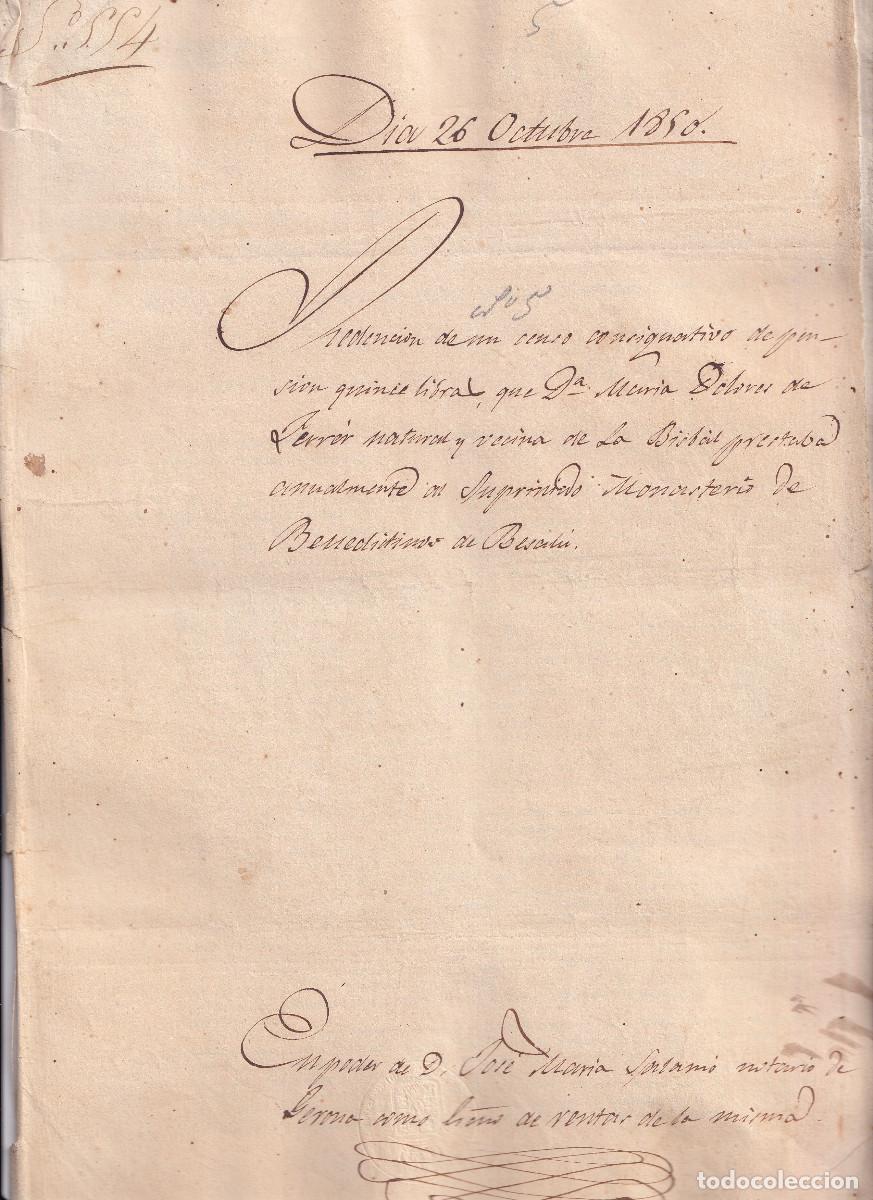 Nº 554
5
Dia 26 Octubre 1850.
Nº 5
Redencion de un censo consignativo de pen-
sion quince libras, que Dª Maria Dolores de
Ferrér natural y vecina de La Bisbal prestaba
anualmente al Suprimido Monasterio de
Benedictinos de Besalú.
En poder de D. José Maria notario de
Gerona como de rentas de la misma.
todocoleccion